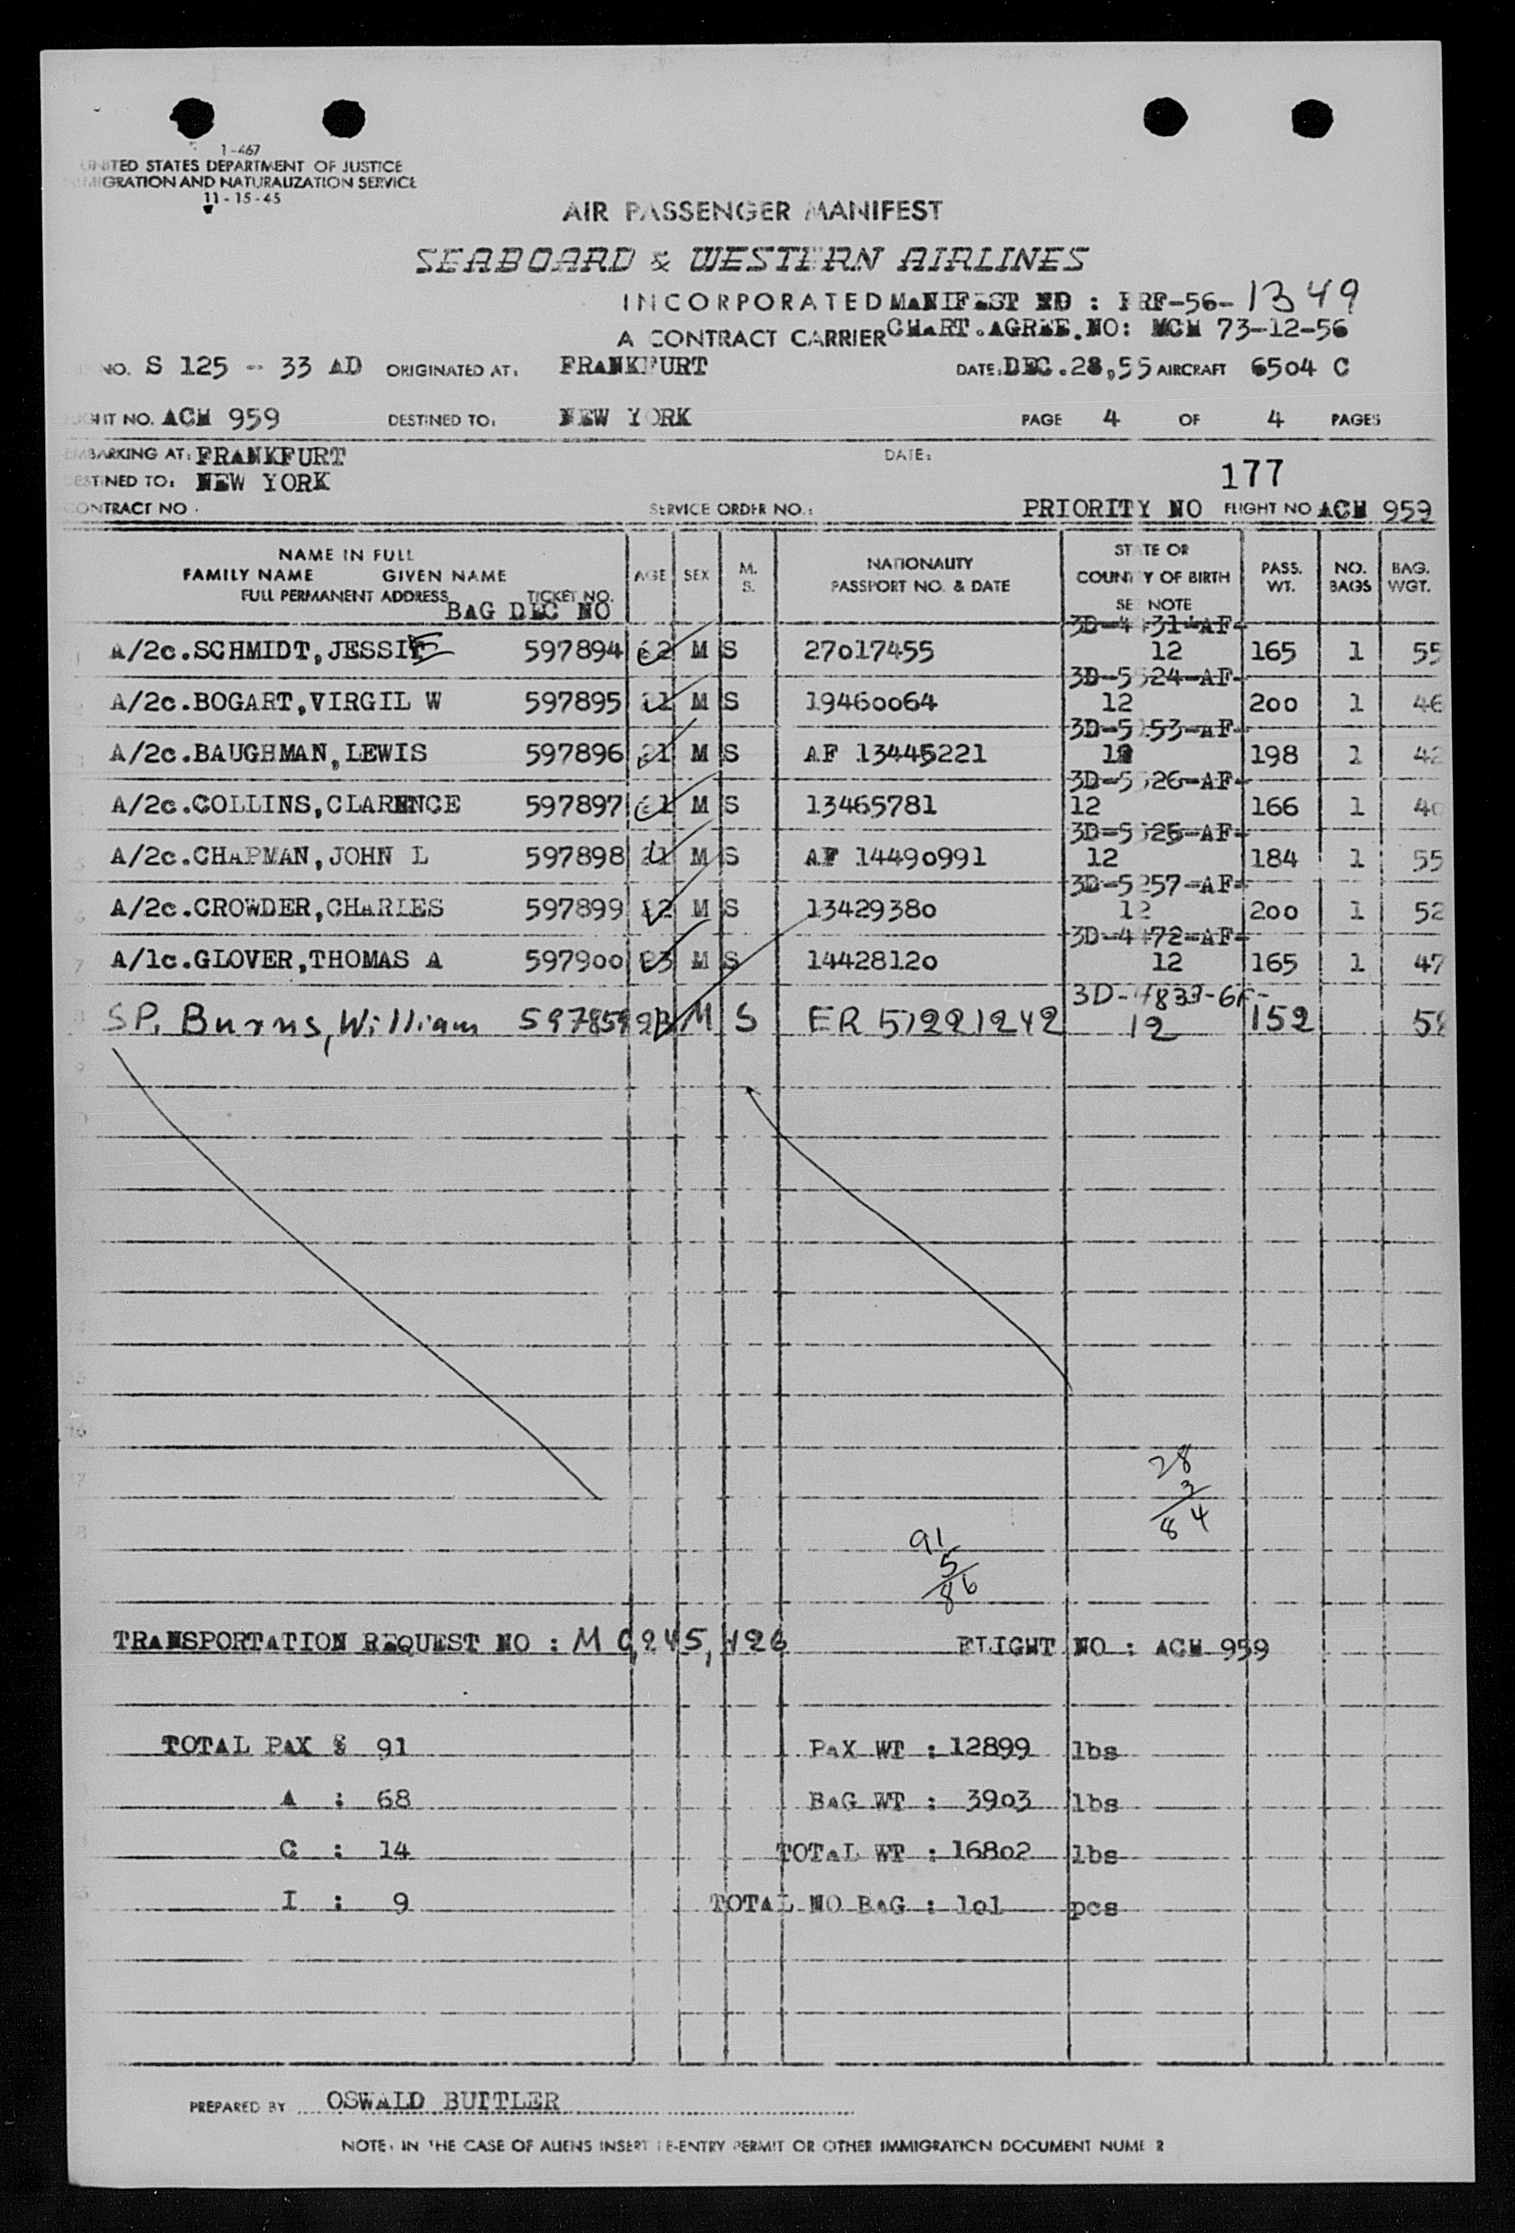 1-467
UNITED STATES DEPARTMENT OF JUSTICE
IMMIGRATION AND NATURALIZATION SERVICE
11-15-45
AIR PASSENGER MANIFEST
SEABOARD & WESTERN AIRLINES
INCORPORATED MANIFEST NO : FRF-56-1349
A CONTRACT CARRIER CHART.AGREE.NO: MCM 73-12-56
NO. S 125 - 33 AD ORIGINATED AT: FRANKFURT DATE: DEC.28,55 AIRCRAFT 6504 C
FLIGHT NO. ACM 959 DESTINED TO: NEW YORK PAGE 4 OF 4 PAGES
EMBARKING AT: FRANKFURT DATE:
DESTINED TO: NEW YORK 177
CONTRACT NO. SERVICE ORDER NO.: PRIORITY NO FLIGHT NO ACM 959
NAME IN FULL
FAMILY NAME GIVEN NAME
FULL PERMANENT ADDRESS TICKET NO.
BAG DEC NO
AGE SEX M. S. NATIONALITY PASSPORT NO. & DATE STATE OR COUNTY OF BIRTH SEE NOTE PASS. WT. NO. BAGS BAG. WGT.
3D-4 31-AF-
1 A/2c.SCHMIDT,JESSIE 597894 22 M S 27017455 12 165 1 55
3D-5524-AF-
2 A/2c.BOGART,VIRGIL W 597895 21 M S 19460064 12 200 1 46
3D-5153-AF-
A/2c.BAUGHMAN,LEWIS 597896 21 M S AF 13445221 12 198 1 42
3D-5526-AF-
A/2c.COLLINS,CLARENCE 597897 21 M S 13465781 12 166 1 40
3D-5525-AF-
5 A/2c.CHAPMAN,JOHN L 597898 21 M S AF 14490991 12 184 1 55
3D-5257-AF-
6 A/2c.CROWDER,CHARLES 597899 22 M S 13429380 12 200 1 52
3D-4472-AF-
7 A/1c.GLOVER,THOMAS A 597900 23 M S 14428120 12 165 1 47
3D-4833-6F-
8 SP. Burns, William 597859 23 M S ER 51221242 12 152 58
28
3
84
91
5
86
TRANSPORTATION REQUEST NO : M 6,245,126 FLIGHT NO : ACM 959
TOTAL PAX : 91 PAX WT : 12899 lbs
A : 68 BAG WT : 3903 lbs
C : 14 TOTAL WT : 16802 lbs
I : 9 TOTAL NO BAG : 101 pcs
PREPARED BY OSWALD BUTTLER
NOTE: IN THE CASE OF ALIENS INSERT RE-ENTRY PERMIT OR OTHER IMMIGRATION DOCUMENT NUMBER